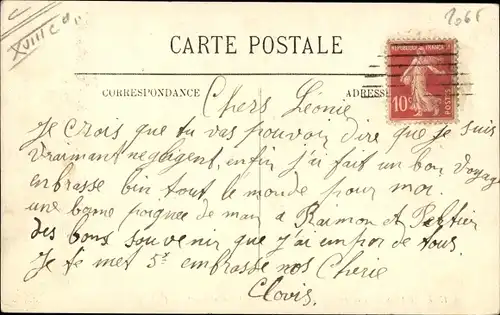 XVIIIe
2065
CARTE POSTALE
CORRESPONDANCE
ADRESSE
REPUBLIQUE FRANCAISE
10c
POSTES
Chers Léonie
Je crois que tu vas pouvoir dire que je suis
vraimant negligent, enfin j'ai fait un bon voyage
enbrasse bin tout le monde pour moi.
une bonne poignee de main a Raimon et
des bons souvenir que j'ai de tous.
Je te met 5f embrasse nos Cherie
Clovis.